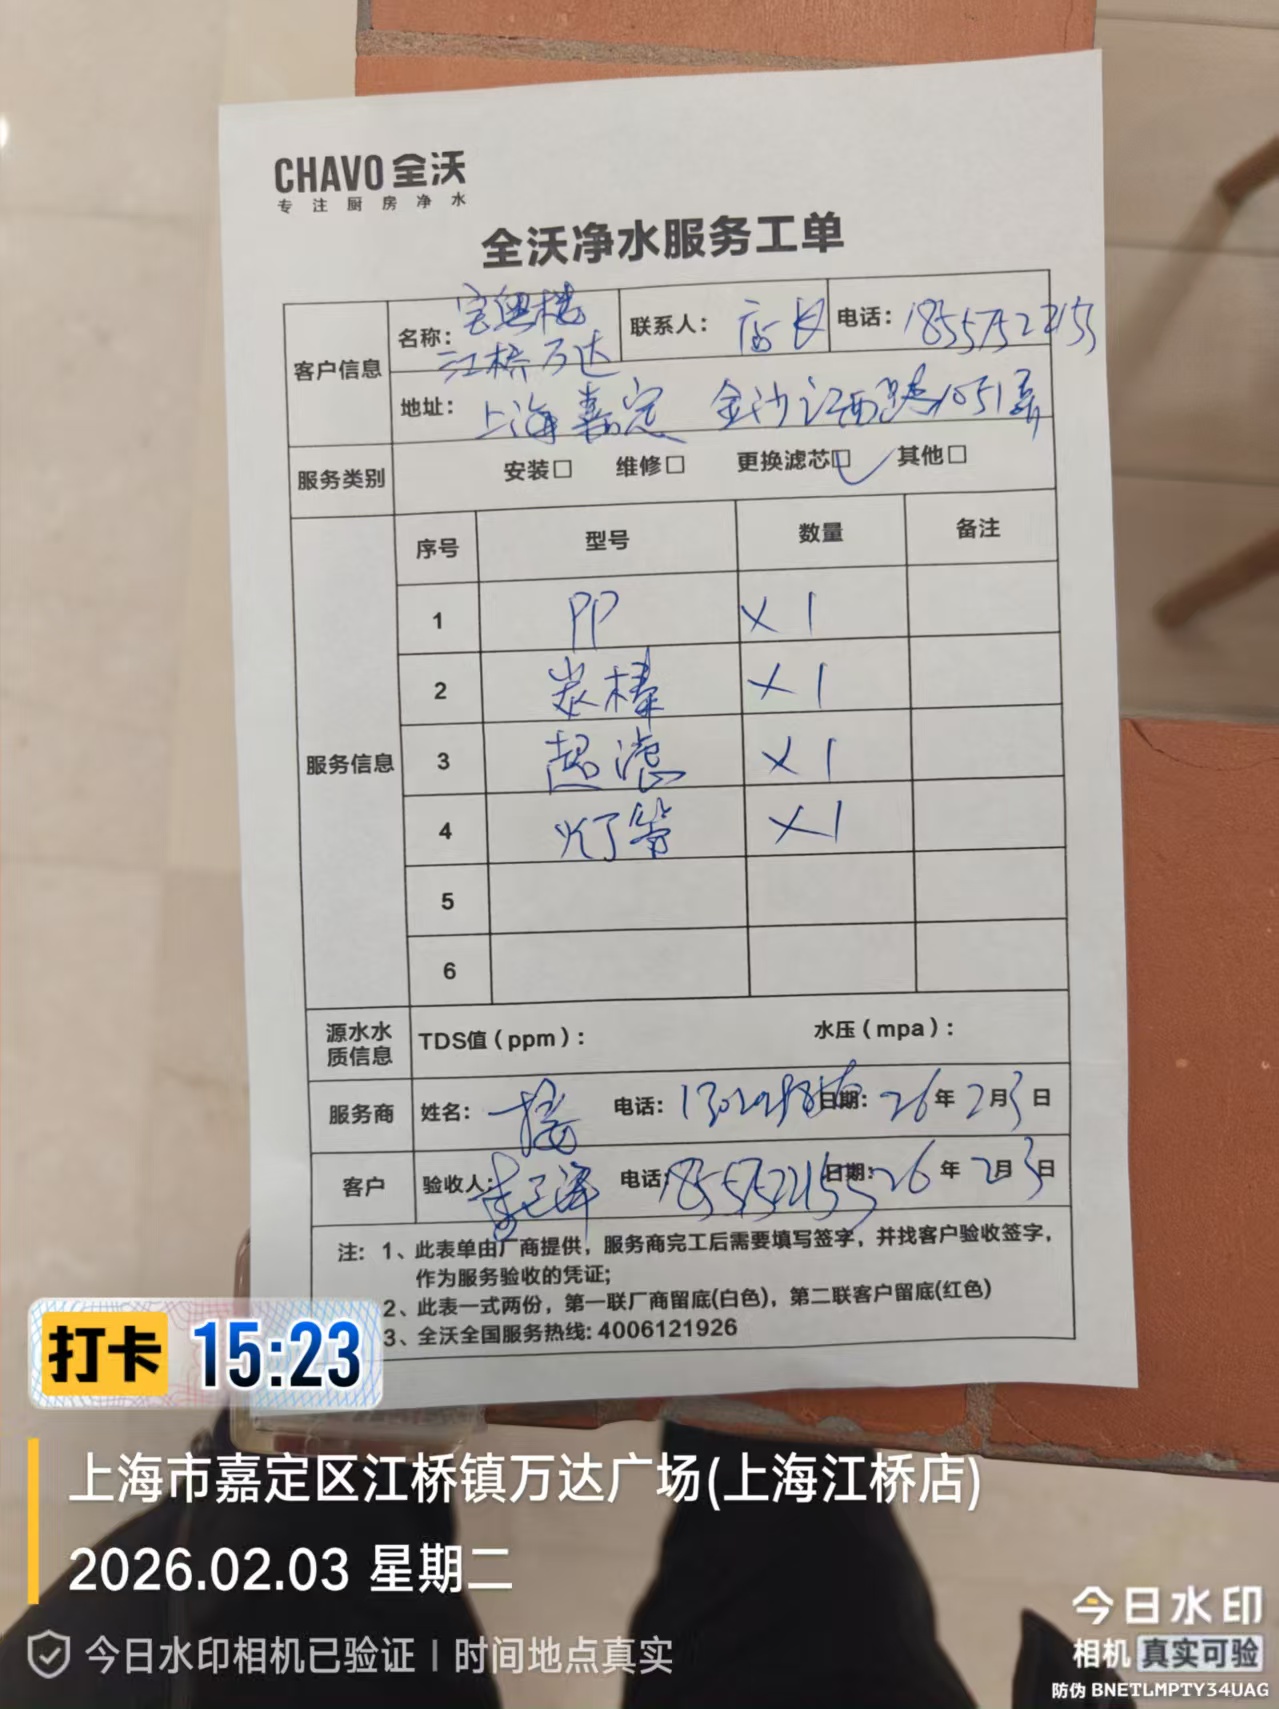 CHAVO 全沃
专注厨房净水
全沃净水服务工单
客户信息
名称: 宝奥楼 江桥万达
联系人: 店长
电话: 18557522155
地址: 上海嘉定 金沙江西路1051弄
服务类别
安装□ 维修□ 更换滤芯□✓ 其他□
服务信息
序号 型号 数量 备注
1 PP X1
2 炭棒 X1
3 超滤 X1
4 灯管 X1
5
6
源水水质信息
TDS值(ppm): 水压(mpa):
服务商 姓名: 电话: 日期: 26年2月3日
客户 验收人: 电话: 18557522155 日期: 26年2月3日
注: 1、此表单由厂商提供，服务商完工后需要填写签字，并找客户验收签字，
作为服务验收的凭证;
2、此表一式两份，第一联厂商留底(白色)，第二联客户留底(红色)
3、全沃全国服务热线: 4006121926
打卡 15:23
上海市嘉定区江桥镇万达广场(上海江桥店)
2026.02.03 星期二
今日水印相机已验证 | 时间地点真实
今日水印
相机 真实可验
防伪 BNETLMPTY34UAG